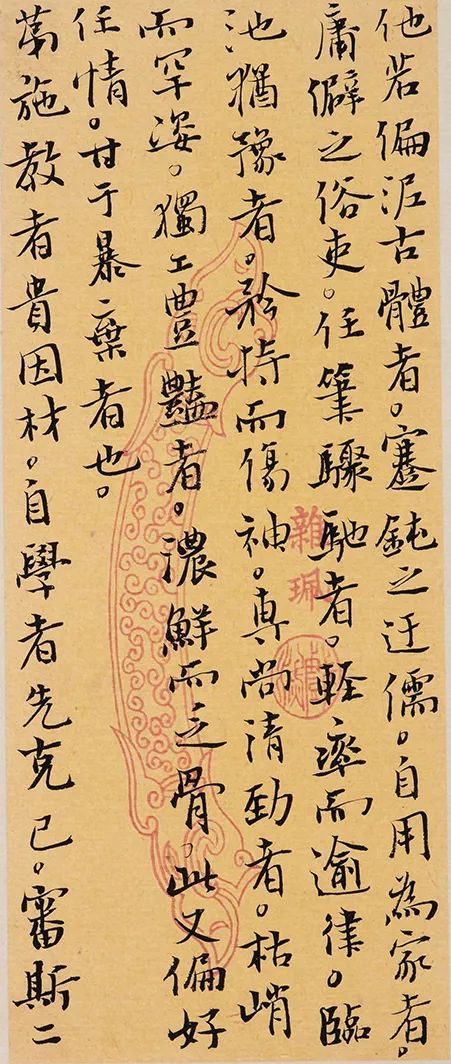 他若偏泥古體者。蹇鈍之迂儒。自用為家者。
庸僻之俗吏。任筆驟馳者。輕率而逾律。臨
池猶豫者。矜持而傷神。專尚清勁者。枯峭
而罕姿。獨工豊豔者。濃鮮而乏骨。此又偏好
任情。甘于暴棄者也。
苐施教者貴因材。自學者先克己。審斯二
雜珮